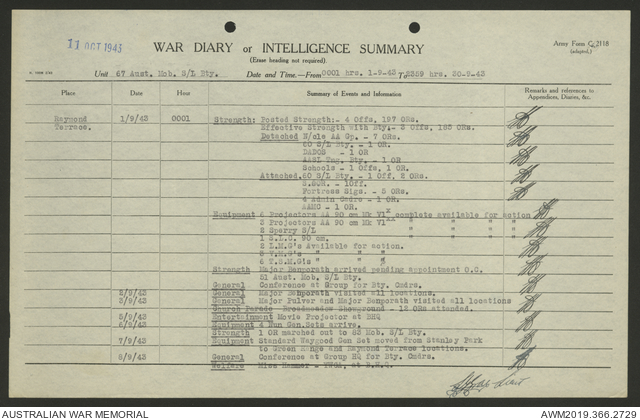 11 OCT 1943
WAR DIARY or INTELLIGENCE SUMMARY
(Erase heading not required)
Army Form C. 2118
(adapted.)
Unit 67 Aust. Mob. S/L Bty. Date and Time.—From 0001 hrs. 1-9-43 To 2359 hrs. 30-9-43
Place Date Hour Summary of Events and Information Remarks and references to Appendices, Diaries, &c.
Raymond Terrace. 1/9/43 0001 Strength: Posted Strength:- 4 Offs, 197 ORs.
Effective Strength with Bty.- 3 Offs, 183 ORs.
Detached N/cle AA Gp. - 7 ORs.
60 S/L Bty. - 1 OR.
DADOS - 1 OR
AASL Tng. Bty. - 1 OR.
Schools - 1 Offs, 1 OR.
Attached 60 S/L Bty. - 1 Off, 2 ORs.
- 1Off.
Fortress Sigs. - 5 ORs.
4 Admin Cadre - 1 OR.
AAMC - 1 OR.
Equipment 4 Projectors AA 90 cm Mk V1 complete available for action
3 Projectors AA 90 cm Mk V1 " " " "
2 Sperry S/L " " " "
1 S.L.C. 90 cm.
2 L.M.G's Available for action.
" " "
6 T.S.M.G's " " "
Strength Major Benporath arrived pending appointment O.C.
51 Aust. Mob. S/L Bty.
General Conference at Group for Bty. Comdrs.
2/9/43 General Major Benporath visited all locations.
3/9/43 General Major Pulver and Major Benporath visited all locations
Church Parade - Broadmeadow Showground - ORs attended.
5/9/43 Entertainment Movie Projector at BHQ
6/9/43 Equipment 4 Gen. Sets arrive.
Strength 1 OR marched out to 63 Mob. S/L Bty.
7/9/43 Equipment Standard Waygood Gen Set moved from Stanley Park
to Green Range and Raymond Terrace locations.
8/9/43 General Conference at Group HQ for Bty. Comdrs.
Welfare Miss Hammer - YWCA, at B.H.Q.
AUSTRALIAN WAR MEMORIAL
AWM2019.366.2729